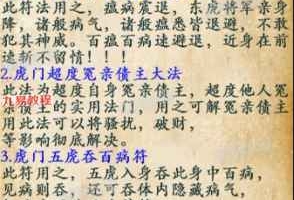 此符法用之，瘟病震退，东虎将军亲身
降，诸般病气，诸般瘟恶皆退避，不敢
犯其神威。百瘟百病速避退，近身在前
速斩不留情！！！
2.虎门超度冤亲债主大法
此法为超度自身冤亲债主，超度他人冤
亲债主的实用法门，用之可解冤亲债主
用此法可以将骚扰，破财，
等影响彻底解决。
九易教程
3.虎门五虎吞百病符
此符用之，五虎入身吞此身中百病，
见病则吞，还可吞体内隐藏病气，